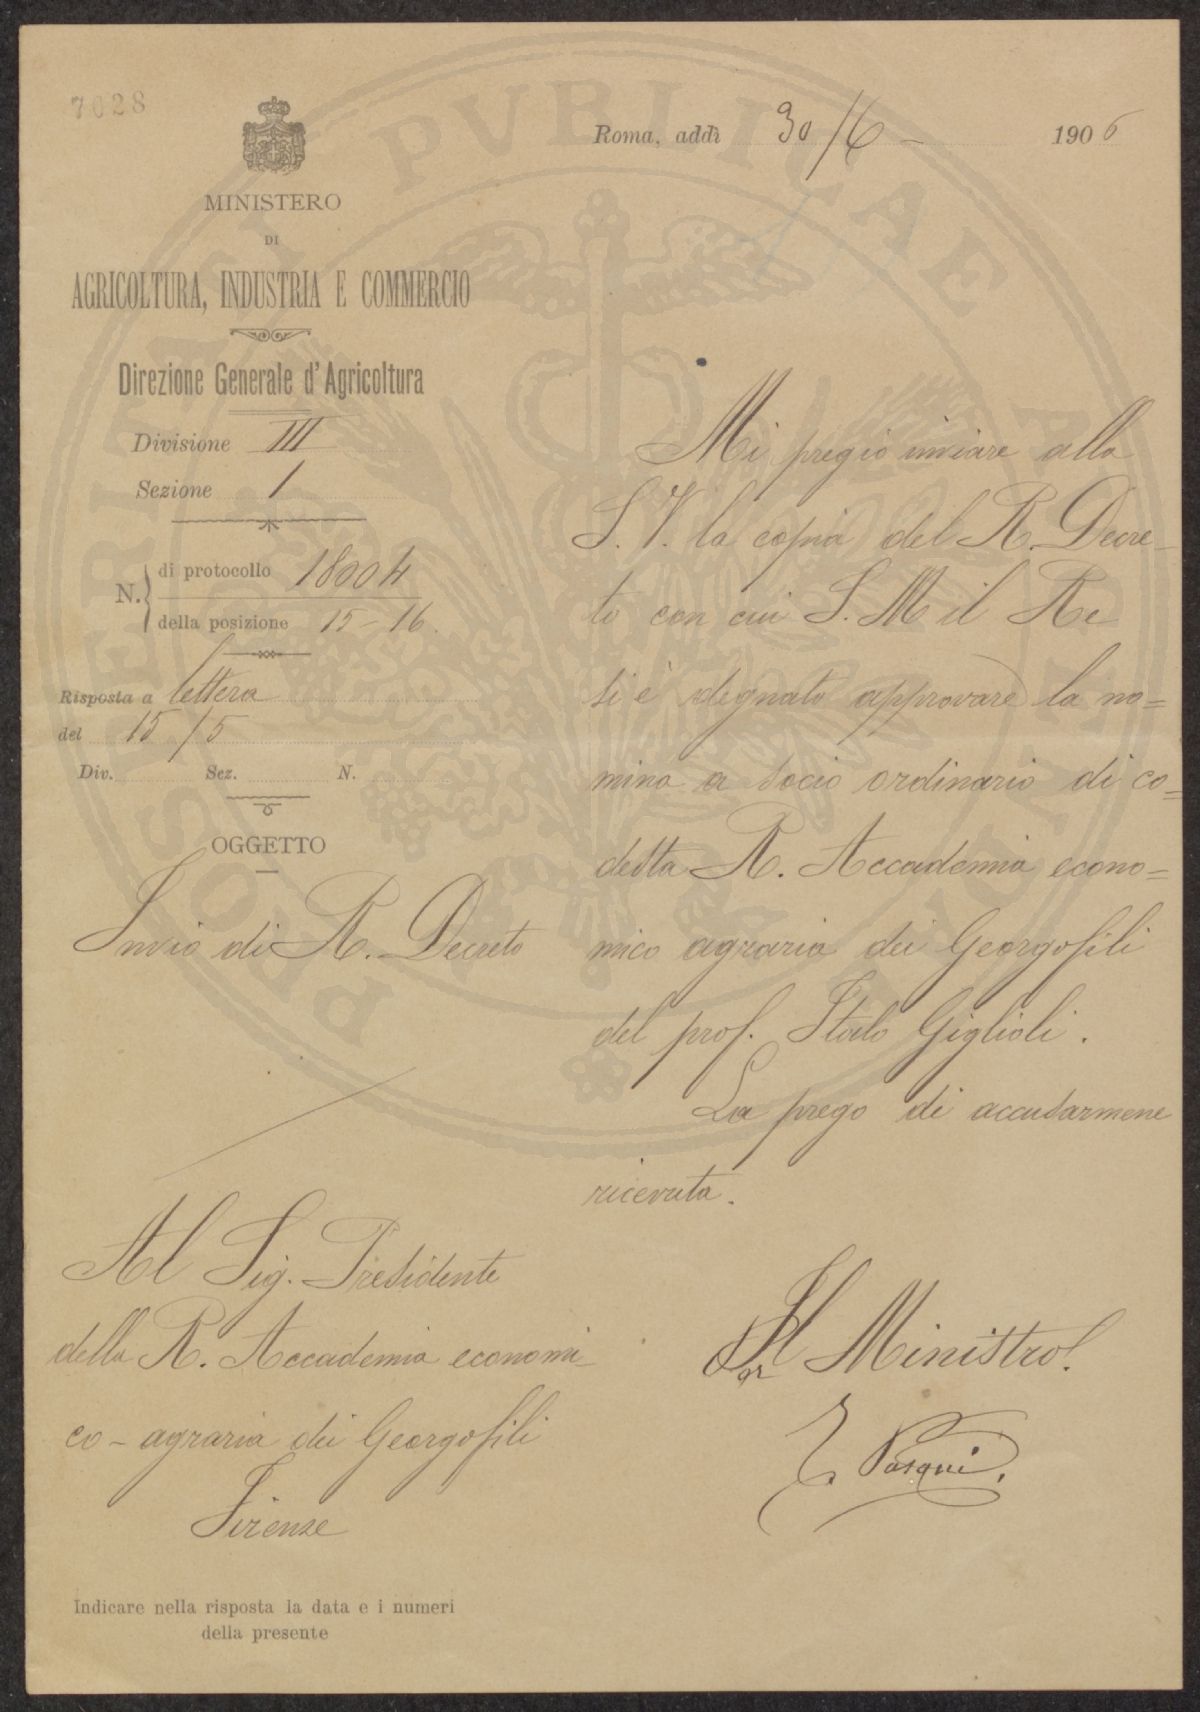 7028
MINISTERO
DI
AGRICOLTURA, INDUSTRIA E COMMERCIO
Direzione Generale d'Agricoltura
Divisione III
Sezione 1
N. di protocollo 18004
della posizione 15-16.
Risposta a lettera
del 15/5
Div. Sez. N.
OGGETTO
Invio di R. Decreto
Al Sig. Presidente
della R. Accademia economi-
co-agraria dei Georgofili
Firenze
Indicare nella risposta la data e i numeri
della presente
Roma, addì 30/6 - 1906
Mi pregio inviare alla
S. V. la copia del R. Decre-
to con cui S. M il Re
si è degnato approvare la no=
mina a socio ordinario di co=
desta R. Accademia econo=
mico agraria dei Georgofili
del prof. Italo Giglioli.
La prego di accusarmene
ricevuta.
Pel Ministro.
E. Pasqui.
PROSPERITATI PVBLICAE AVGENDAE